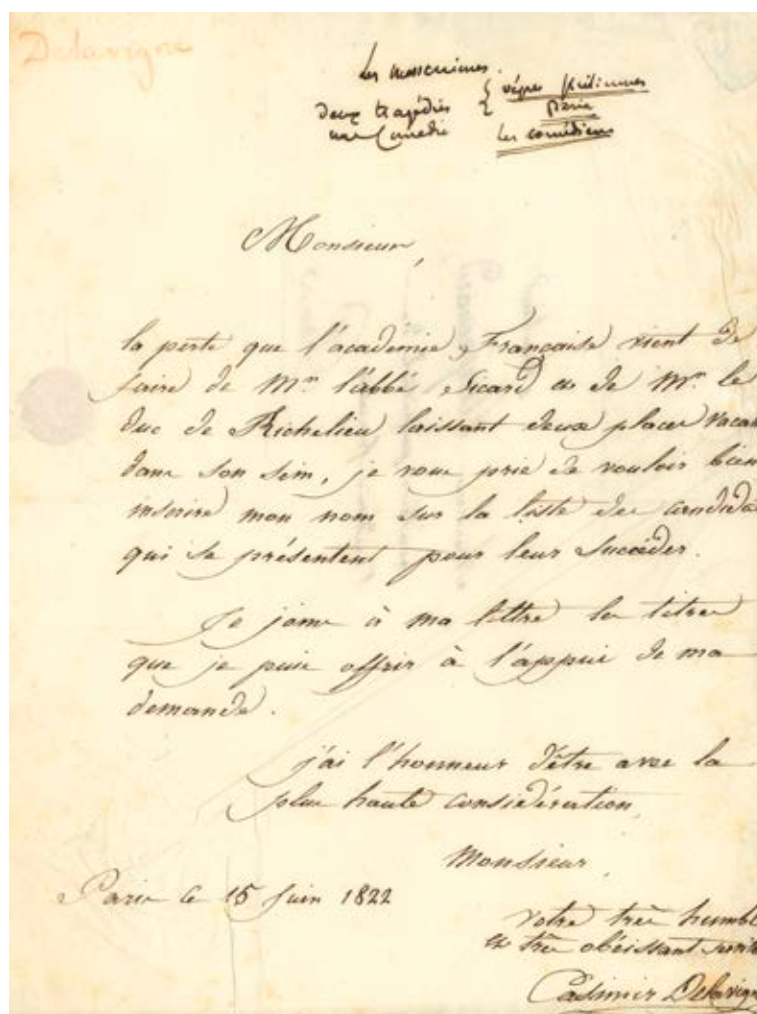 Delavigne
les messeniennes
deux tragédies { vêpres siciliennes
paria
une Comedie les comédiens
Monsieur,
la perte que l'académie Française vient de
faire de Mr. l'abbé Sicard et de Mr. le
duc de Richelieu laissant deux places vacan
dans son sein, je vous prie de vouloir bien
inscrire mon nom sur la liste des candida
qui se présentent pour leur succéder.
Je joins à ma lettre les titres
que je puis offrir à l'appui de ma
demande.
j'ai l'honneur d'être avec la
plus haute considération,
Monsieur,
Paris le 15 Juin 1822
votre très humbl
et très obéissant servit
Casimir Delavign